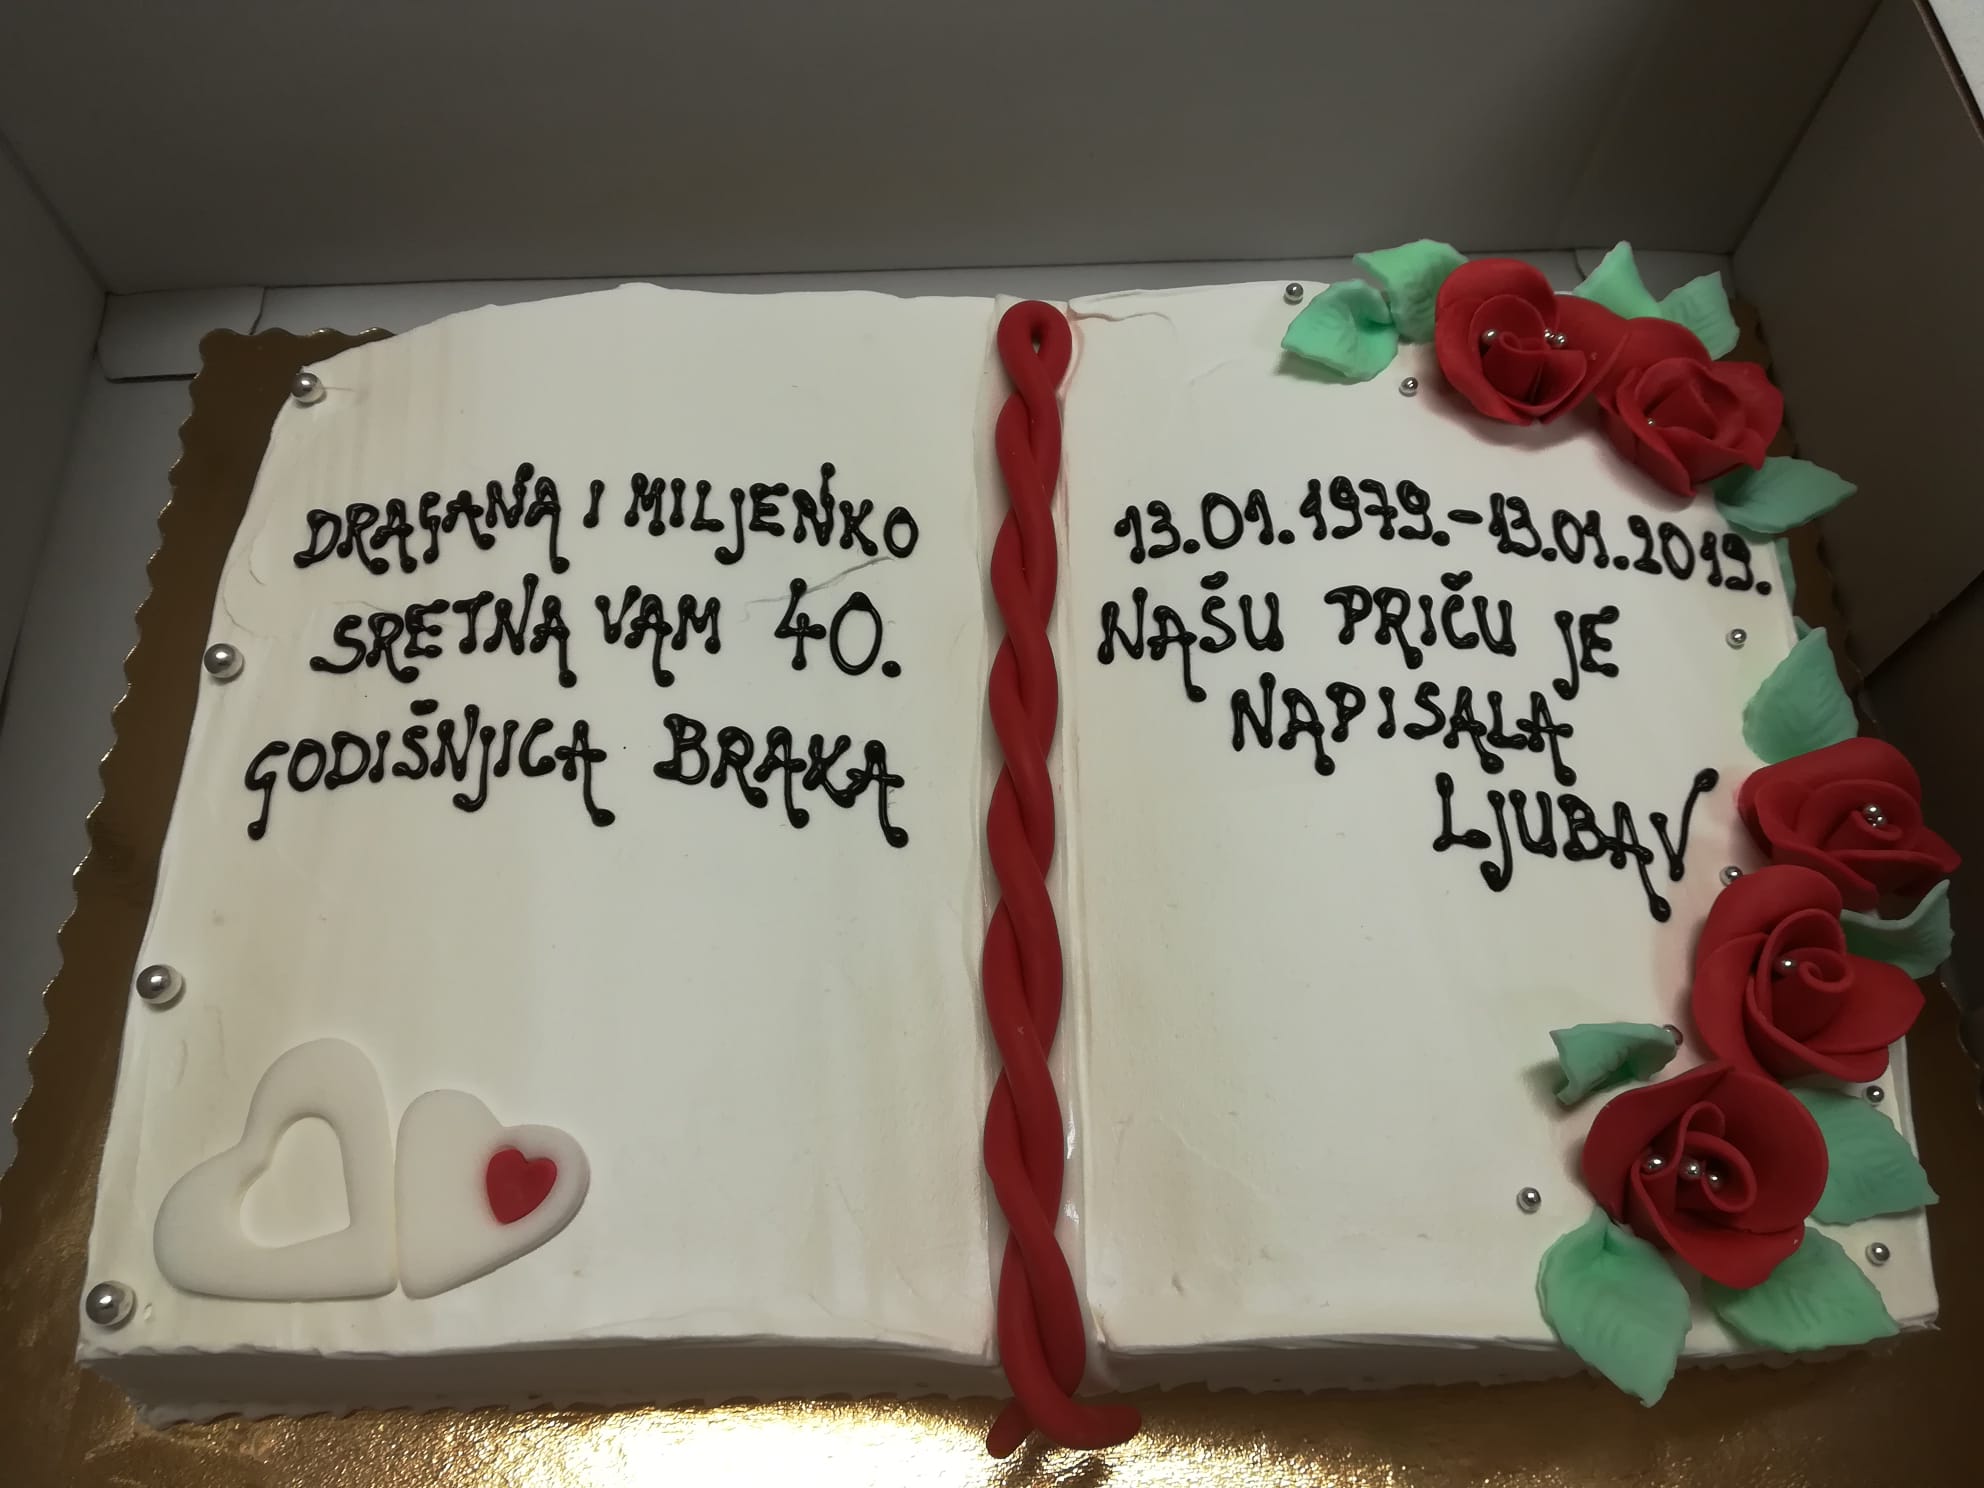 DRAGANA I MILJENKO
SRETNA VAM 40.
GODIŠNJICA BRAKA
13.01.1979.-13.01.2019.
NAŠU PRIČU JE
NAPISALA
LJUBAV